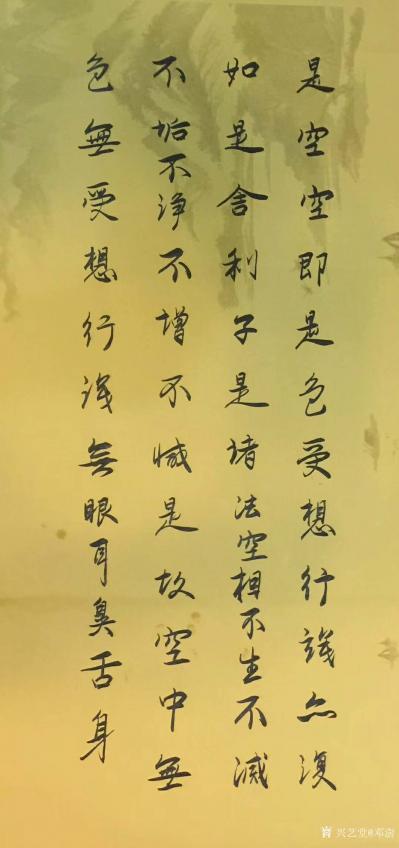 是空空即是色受想行識亦復
如是舍利子是诸法空相不生不滅
不垢不净不增不减是故空中無
色無受想行識無眼耳鼻舌身
兴艺堂@邓澍